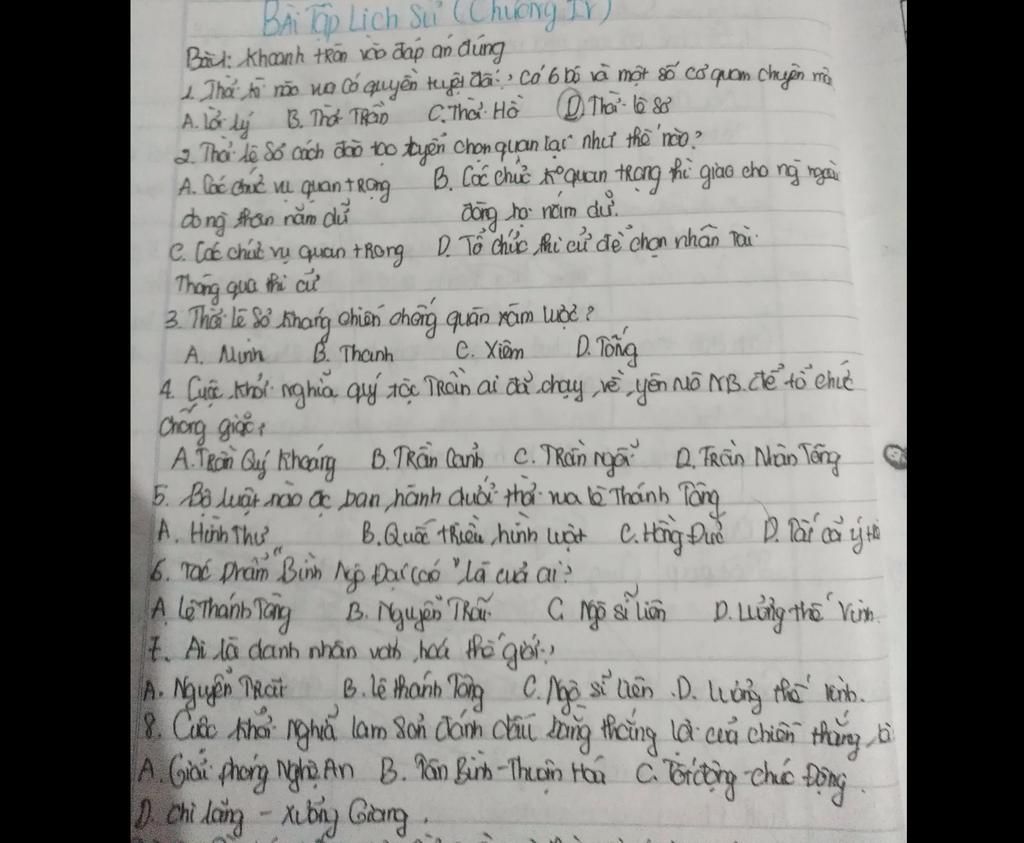 BÀI Tập Lịch Sử (Chương IV)
Bài 1: Khoanh tròn vào đáp án đúng
1. Thời kì nào vua có quyền tuyệt đối, có 6 bộ và một số cơ quan chuyên mô
A. Lời Lý B. Thời Trần C. Thời Hồ D. Thời Lê Sơ
2. Thời Lê Sơ cách đào tạo tuyển chọn quan lại như thế nào?
A. Các chức vụ quan trọng B. Các chức quan trọng thì giao cho ng ngoài
dòng thân nắm dữ dòng họ nắm dữ.
C. Các chức vụ quan trọng D. Tổ chức thi cử để chọn nhân tài.
Thông qua thi cử
3. Thời Lê Sơ kháng chiến chống quân xâm lược?
A. Minh B. Thanh C. Xiêm D. Tống
4. Cuộc khởi nghĩa quý tộc Trần ai đã chạy về yên Mô NB. để tổ chức
chống giặc?
A. Trần Quý Khoáng B. Trần Cảnh C. Trần Ngỗi D. Trần Nhân Tông
5. Bộ luật nào đc ban hành dưới thời vua Lê Thánh Tông
A. Hình Thư B. Quốc triều hình luật C. Hồng Đức D. Tất cả ý
6. Tác phẩm "Bình Ngô Đại Cáo" là của ai?
A. Lê Thánh Tông B. Nguyễn Trãi C. Ngô sĩ Liên D. Lương thế Vinh.
7. Ai là danh nhân văn hoá thế giới?
A. Nguyễn Trãi B. Lê thánh Tông C. Ngô sĩ Liên D. Lương thế Vinh.
8. Cuộc khởi nghĩa lam Sơn đánh dấu bằng thắng lợi của chiến thắng
A. Giải phóng Nghệ An B. Tân Bình-Thuận Hoá C. Tốt động-chúc Động.
D. chi lăng - xương Giang.